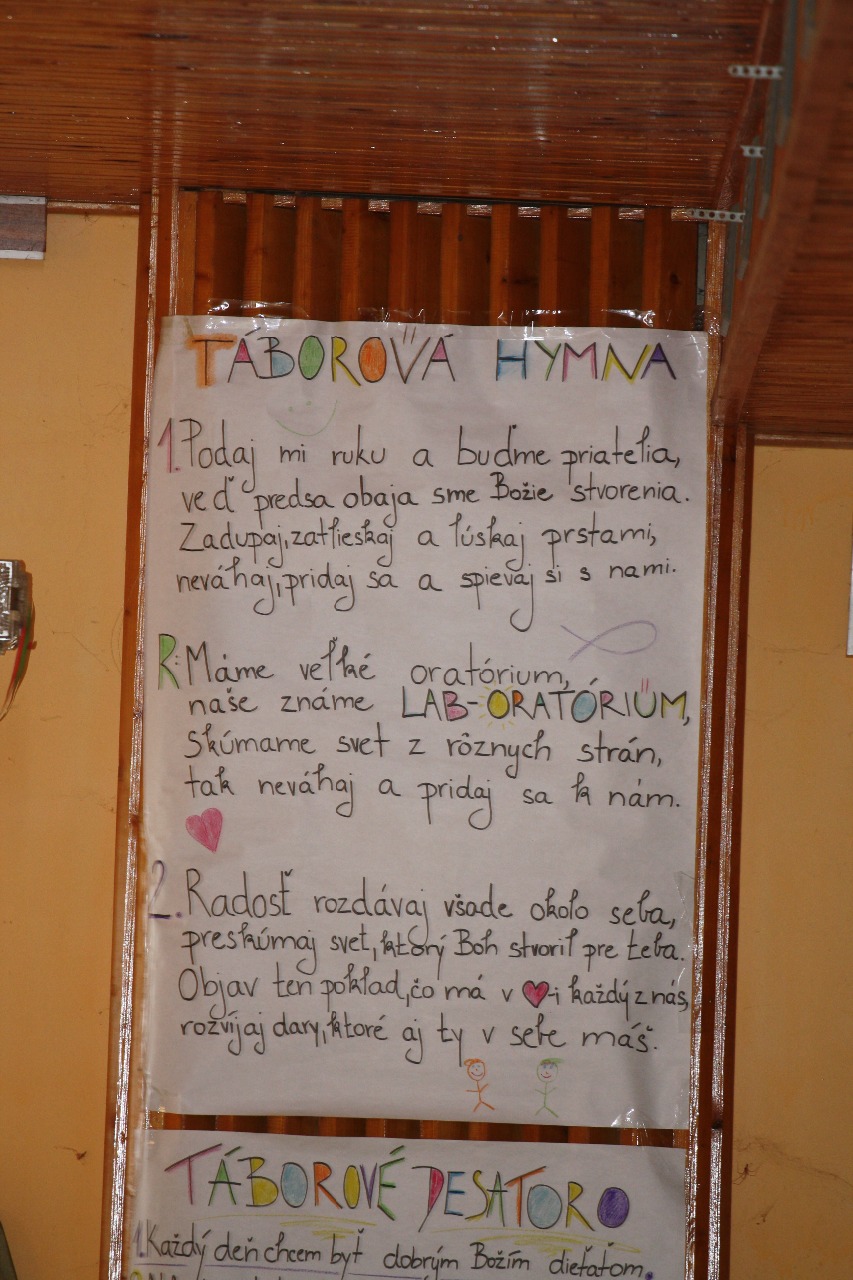 TÁBOROVÁ HYMNA
1. Podaj mi ruku a buďme priatelia,
veď predsa obaja sme Božie stvorenia.
Zadupaj, zatlieskaj a lúskaj prstami,
neváhaj, pridaj sa a spievaj si s nami.
R: Máme veľké oratórium,
naše známe LAB-ORATÓRIUM,
Skúmame svet z rôznych strán,
tak neváhaj a pridaj sa k nám.
2. Radosť rozdávaj všade okolo seba,
preskúmaj svet, ktorý Boh stvoril pre teba.
Objav ten poklad, čo má v ♥-i každý z nás,
rozvíjaj dary, ktoré aj ty v sebe máš.
TÁBOROVÉ DESATORO
1. Každý deň chcem byť dobrým Božím dieťaťom.